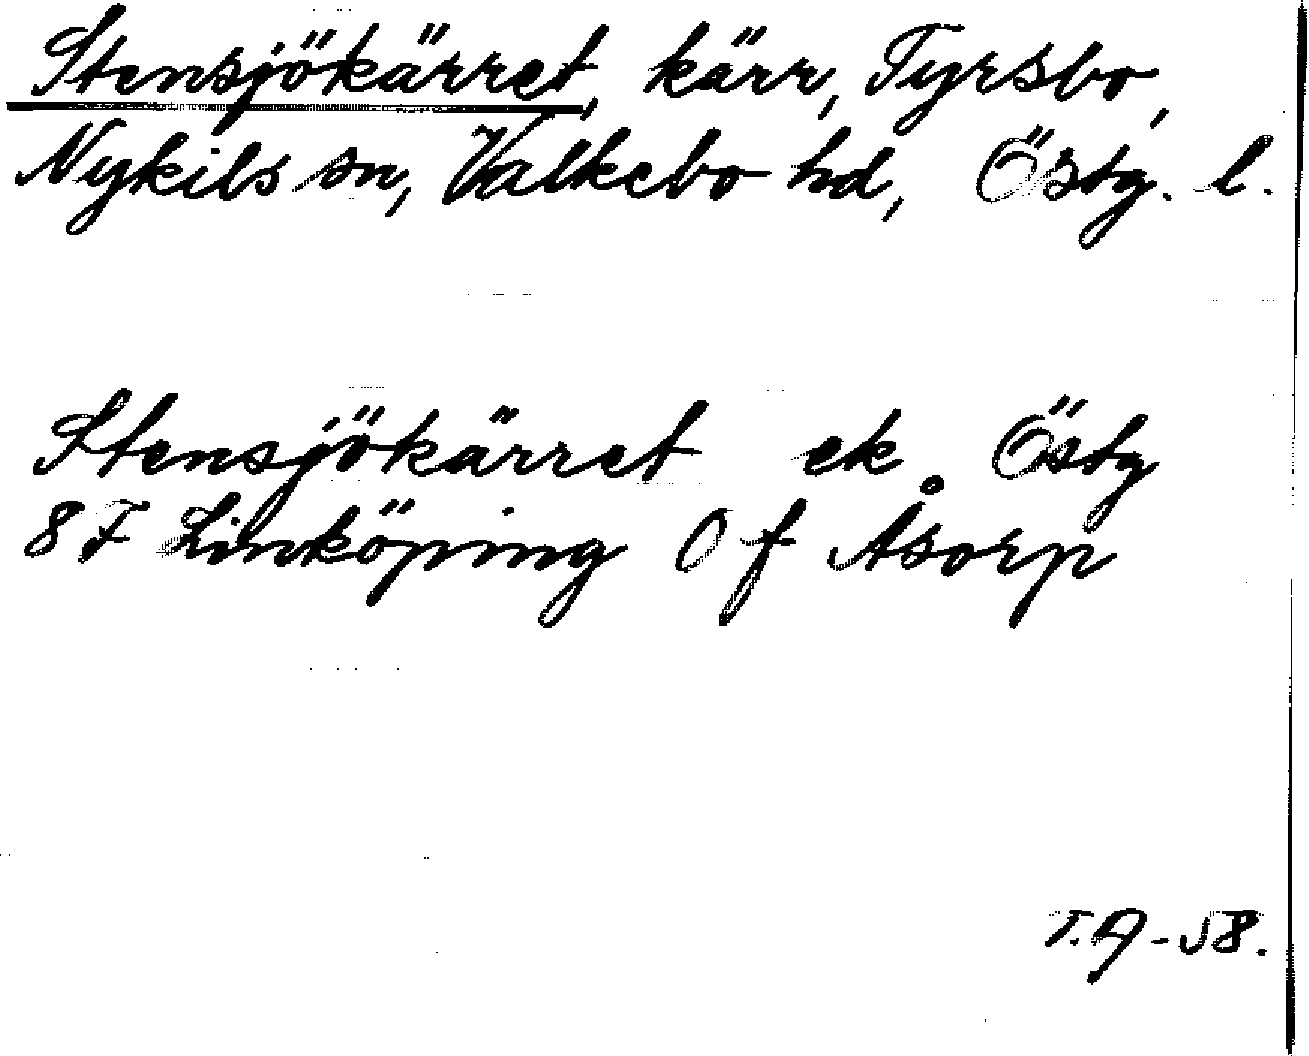 Stensjökärret, kärr, Tyrsbo,
Nykils sn, Valkebo hd, Östg. l.
Stensjökärret ek Östg
8F Linköping 0f Åsorp
T.A-58.